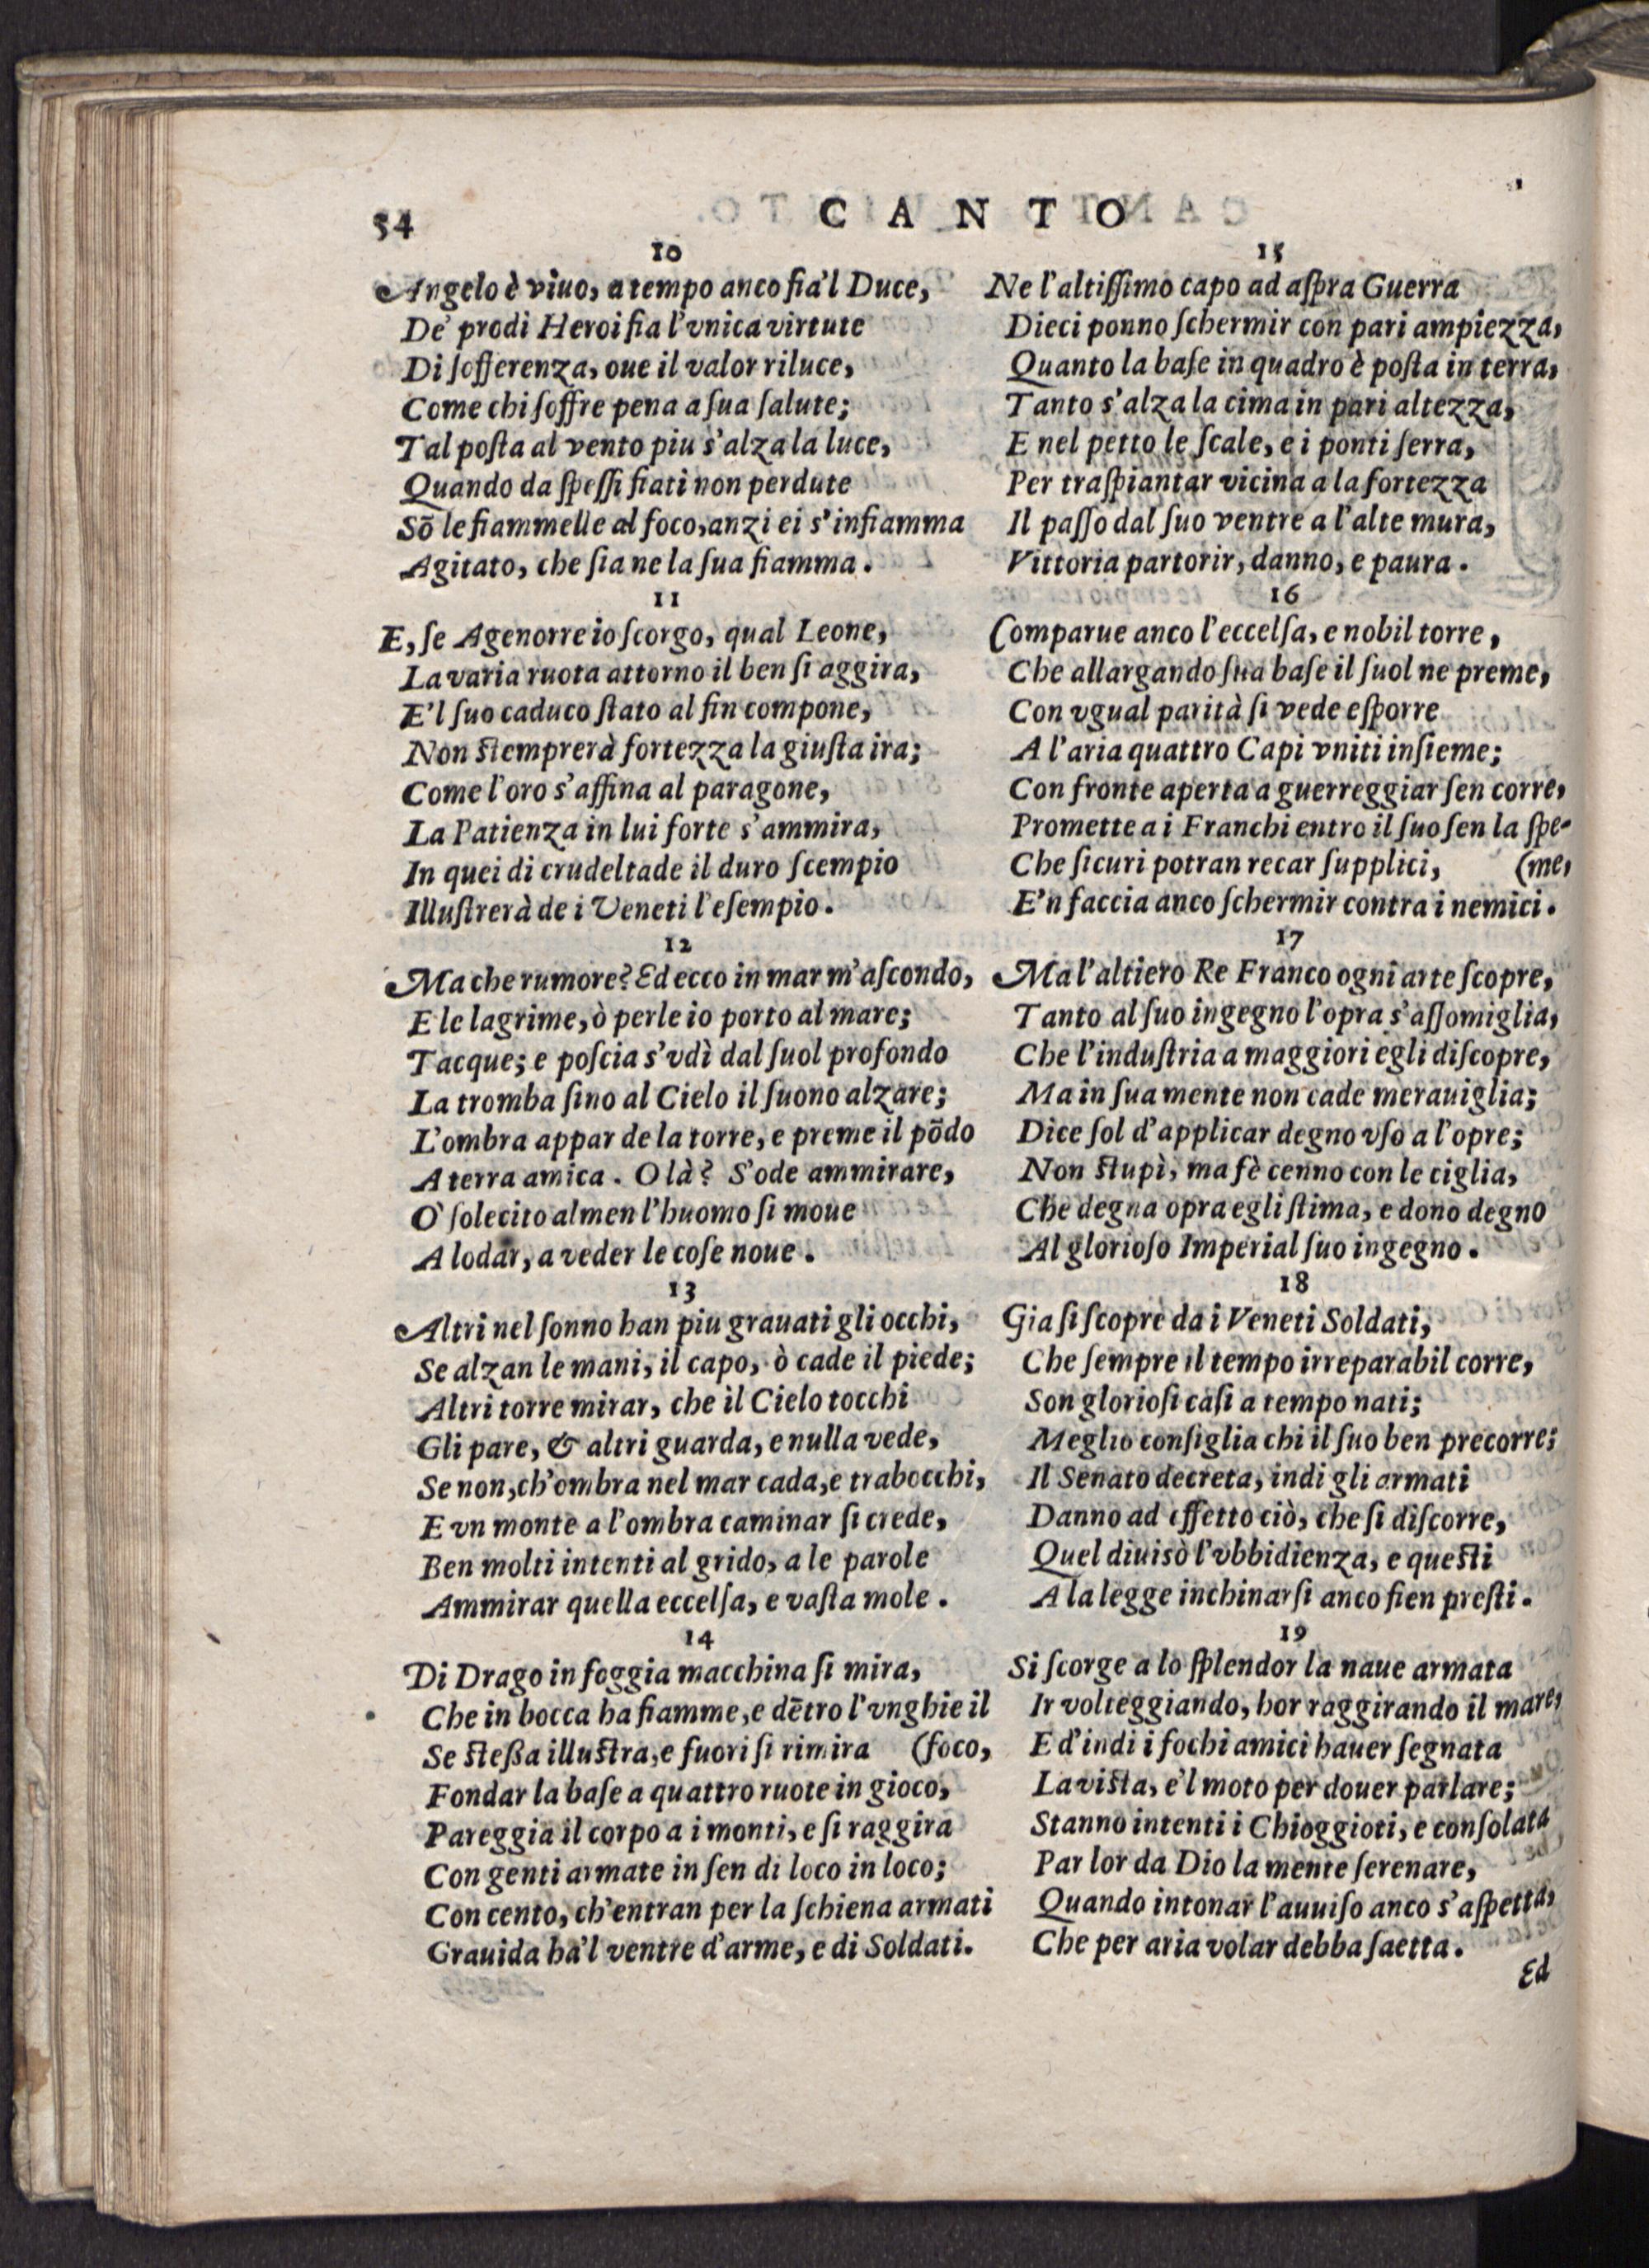 54
CANTO
10
Angelo è viuo, a tempo anco fia'l Duce,
De' prodi Heroi fia l'vnica virtute
Di ſofferenza, oue il valor riluce,
Come chi ſoffre pena a ſua ſalute;
Tal poſta al vento piu s'alza la luce,
Quando da ſpeſſi fiati non perdute
Sõ le fiammelle al foco, anzi ei s'infiamma
Agitato, che ſia ne la ſua fiamma.
11
E, ſe Agenorre io ſcorgo, qual Leone,
La varia ruota attorno il ben ſi aggira,
E'l ſuo caduco ſtato al fin compone,
Non ſtemprerà fortezza la giuſta ira;
Come l'oro s'affina al paragone,
La Patienza in lui forte s'ammira,
In quei di crudeltade il duro ſcempio
Illuſtrerà de i Veneti l'eſempio.
12
Ma che rumore? Ed ecco in mar m'aſcondo,
E le lagrime, ò perle io porto al mare;
Tacque; e poſcia s'vdì dal ſuol profondo
La tromba ſino al Cielo il ſuono alzare;
L'ombra appar de la torre, e preme il põdo
A terra amica. O là? S'ode ammirare,
O' ſolecito almen l'huomo ſi moue
A lodar, a veder le coſe noue.
13
Altri nel ſonno han piu grauati gli occhi,
Se alzan le mani, il capo, ò cade il piede;
Altri torre mirar, che il Cielo tocchi
Gli pare, & altri guarda, e nulla vede,
Se non, ch'ombra nel mar cada, e trabocchi,
E vn monte a l'ombra caminar ſi crede,
Ben molti intenti al grido, a le parole
Ammirar quella eccelſa, e vaſta mole.
14
Di Drago in foggia macchina ſi mira,
Che in bocca ha fiamme, e dẽtro l'vnghie il
Se ſteßa illuſtra, e fuori ſi rimira (foco,
Fondar la baſe a quattro ruote in gioco,
Pareggia il corpo a i monti, e ſi raggira
Con genti armate in ſen di loco in loco;
Con cento, ch'entran per la ſchiena armati
Grauida ha'l ventre d'arme, e di Soldati.
15
Ne l'altiſſimo capo ad aſpra Guerra
Dieci ponno ſchermir con pari ampiezza,
Quanto la baſe in quadro è poſta in terra,
Tanto s'alza la cima in pari altezza,
E nel petto le ſcale, e i ponti ſerra,
Per traſpiantar vicina a la fortezza
Il paſſo dal ſuo ventre a l'alte mura,
Vittoria partorir, danno, e paura.
16
Comparue anco l'eccelſa, e nobil torre,
Che allargando ſua baſe il ſuol ne preme,
Con vgual parità ſi vede eſporre
A l'aria quattro Capi vniti inſieme;
Con fronte aperta a guerreggiar ſen corre,
Promette a i Franchi entro il ſuo ſen la ſpe-
Che ſicuri potran recar ſupplici, (me,
E'n faccia anco ſchermir contra i nemici.
17
Ma l'altiero Re Franco ogni arte ſcopre,
Tanto al ſuo ingegno l'opra s'aſſomiglia,
Che l'induſtria a maggiori egli diſcopre,
Ma in ſua mente non cade merauiglia;
Dice ſol d'applicar degno vſo a l'opre;
Non ſtupì, ma fè cenno con le ciglia,
Che degna opra egli ſtima, e dono degno
Al glorioſo Imperial ſuo ingegno.
18
Gia ſi ſcopre da i Veneti Soldati,
Che ſempre il tempo irreparabil corre,
Son glorioſi caſi a tempo nati;
Meglio conſiglia chi il ſuo ben precorre;
Il Senato decreta, indi gli armati
Danno ad effetto ciò, che ſi diſcorre,
Quel diuisò l'vbbidienza, e queſti
A la legge inchinarſi anco fien preſti.
19
Si ſcorge a lo ſplendor la naue armata
Ir volteggiando, hor raggirando il mare,
E d'indi i fochi amici hauer ſegnata
La viſta, e'l moto per douer parlare;
Stanno intenti i Chioggioti, e conſolata
Par lor da Dio la mente ſerenare,
Quando intonar l'auuiſo anco s'aſpetta,
Che per aria volar debba ſaetta.
Ed